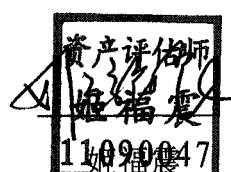 资产评估师
姬福震
11090047
姬福震